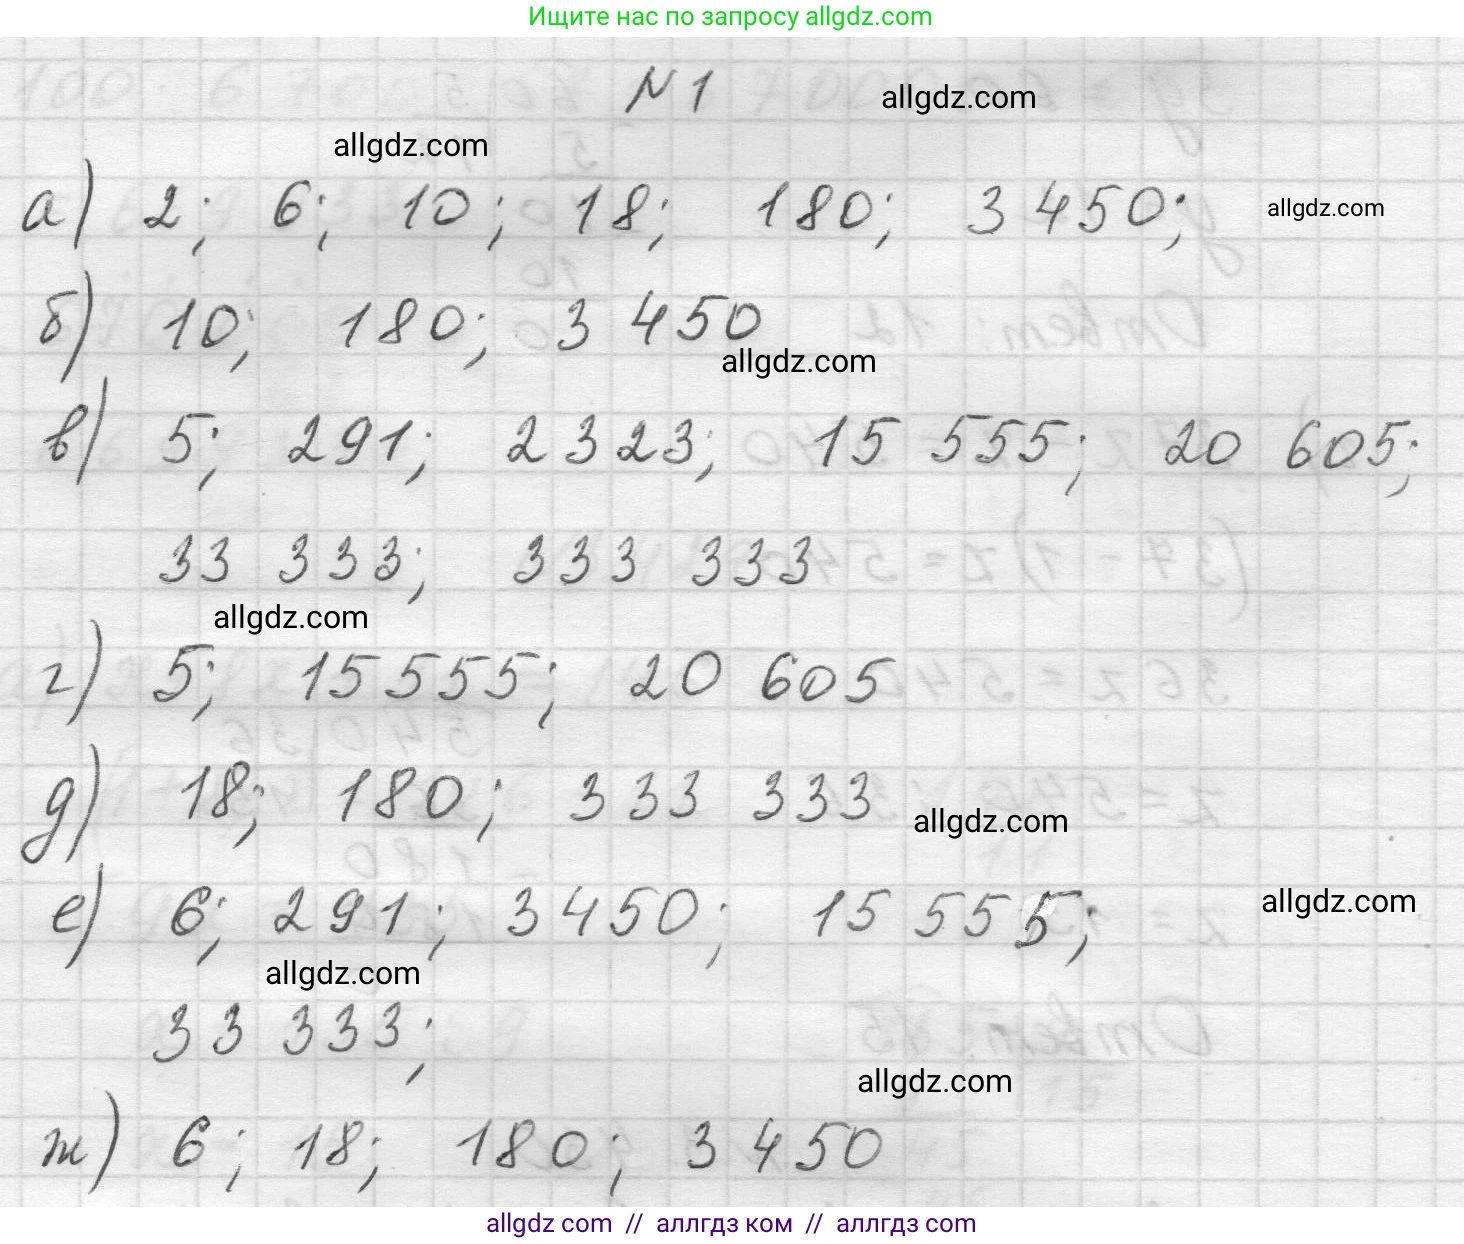 Ищите нас по запросу allgdz.com
N 1
allgdz.com
allgdz.com
а) 2; 6; 10; 18; 180; 3 450;
allgdz.com
б) 10; 180; 3 450
allgdz.com
в) 5; 291; 2 323; 15 555; 20 605;
33 333; 333 333
allgdz.com
г) 5; 15 555; 20 605
д) 18; 180; 333 333
allgdz.com
е) 6; 291; 3 450; 15 555;
allgdz.com
allgdz.com
33 333;
allgdz.com
ж) 6; 18; 180; 3 450
allgdz.com // аллгдз ком // аллгдз com